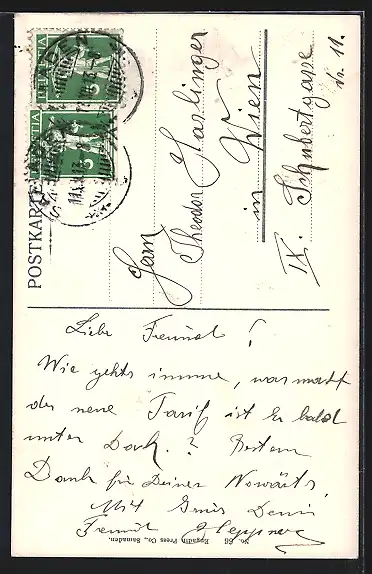 POSTKARTE
HELVETIA
HELVETIA
Herrn
Theodor Haslinger
in Wien
IX. Schubertgasse
Nr. 11.
Liebe Freund!
Wie gehts immer, was macht
der neue Tarif ist Er bald
unter Dach.? Besten
Dank für Deinen
Mit Gruss Dein
Freund Heppner
No. 66 Engadin Press Co., Samaden.